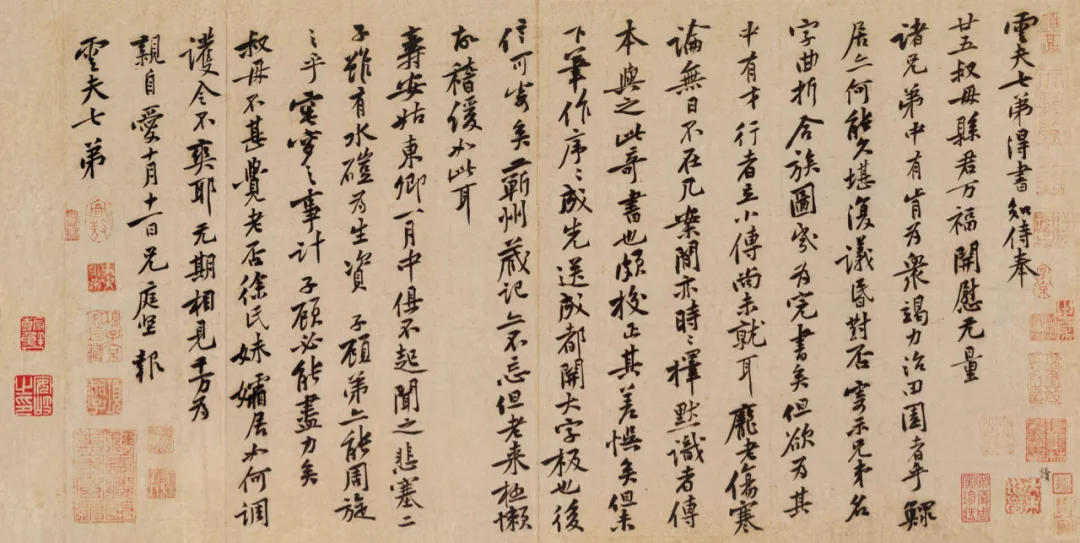 雲夫七弟得書知侍奉
廿五叔母縣君万福開慰无量
諸兄弟中有肯為衆竭力治田園者乎鰥
居亦何能久堪復議昏對否寄示兄弟名
字曲折合族圖歲為完書矣但欲為其
中有才行者立小傳尚未就耳龐老傷寒
論無日不在几案間亦時時擇默識者傳
本與之此奇書也頗校正其差悞矣但未
下筆作序序成先送成都開大字板也後
信可寄矣蘄州藏記亦不忘但老来極懶
故稽緩如此耳
壽安姑東卿一月中俱不起聞之悲塞二
子雖有水磑為生資子顧弟亦能周旋
之乎窀穸之事計子顧必能盡力矣
叔母不甚覺老否徐氏妹孀居如何調
護令不爽耶无期相見千万為
親自愛十月十一日兄庭坚報
雲夫七弟